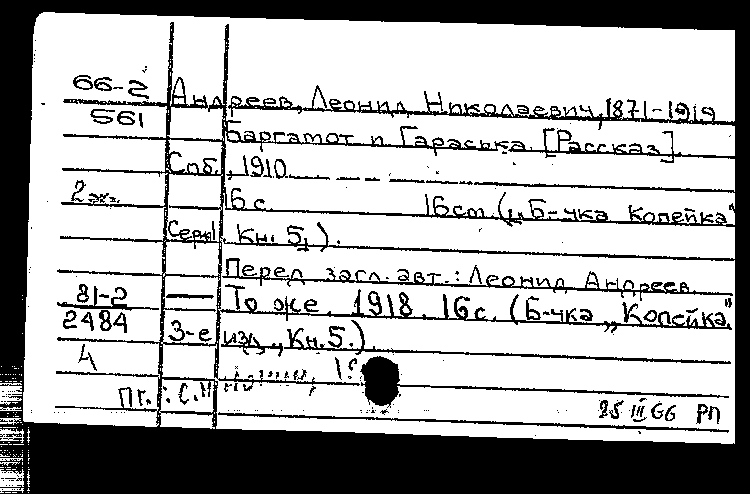 66-2 Андреев, Леонид Николаевич, 1871-1919
561
Баргамот и Гараська. [Рассказ].
Спб., 1910.
2 эк. 16 с. 16 cm. („Б-чка Копейка"
Серы. Кн. 5).
Перед загл. авт.: Леонид Андреев.
81-2 — То же. 1918. 16 с. (Б-чка „Копейка"
2484 3-е изд., Кн. 5.).
4
Пг.:
25 III 66 РП